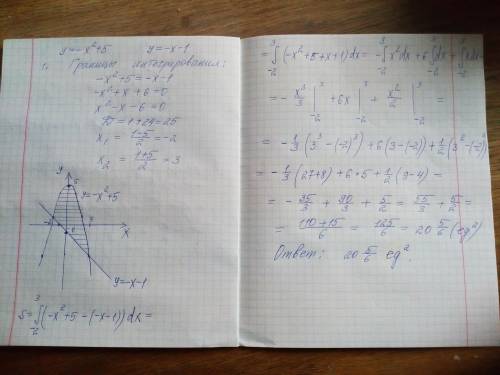 y=-x²+5 y=-x-1
1. Границы интегрирования:
-x²+5=-x-1
-x²+x+6=0
x²-x-6=0
D=1+24=25
x₁=(1-5)/2=-2
x₂=(1+5)/2=3
y
5
y=-x²+5
x
y=-x-1
S=∫₋₂³(-x²+5-(-x-1))dx=
=∫₋₂³(-x²+5+x+1)dx=-∫₋₂³x²dx+6∫₋₂³dx+∫₋₂³xdx=
=-x³/3|₋₂³+6x|₋₂³+x²/2|₋₂³=
=-1/3(3³-(-2)³)+6(3-(-2))+1/2(3²-(-2)²)
=-1/3(27+8)+6·5+1/2(9-4)=
=-35/3+90/3+5/2=55/3+5/2=
=(110+15)/6=125/6=20 5/6(ед²)
Ответ: 20 5/6 ед².